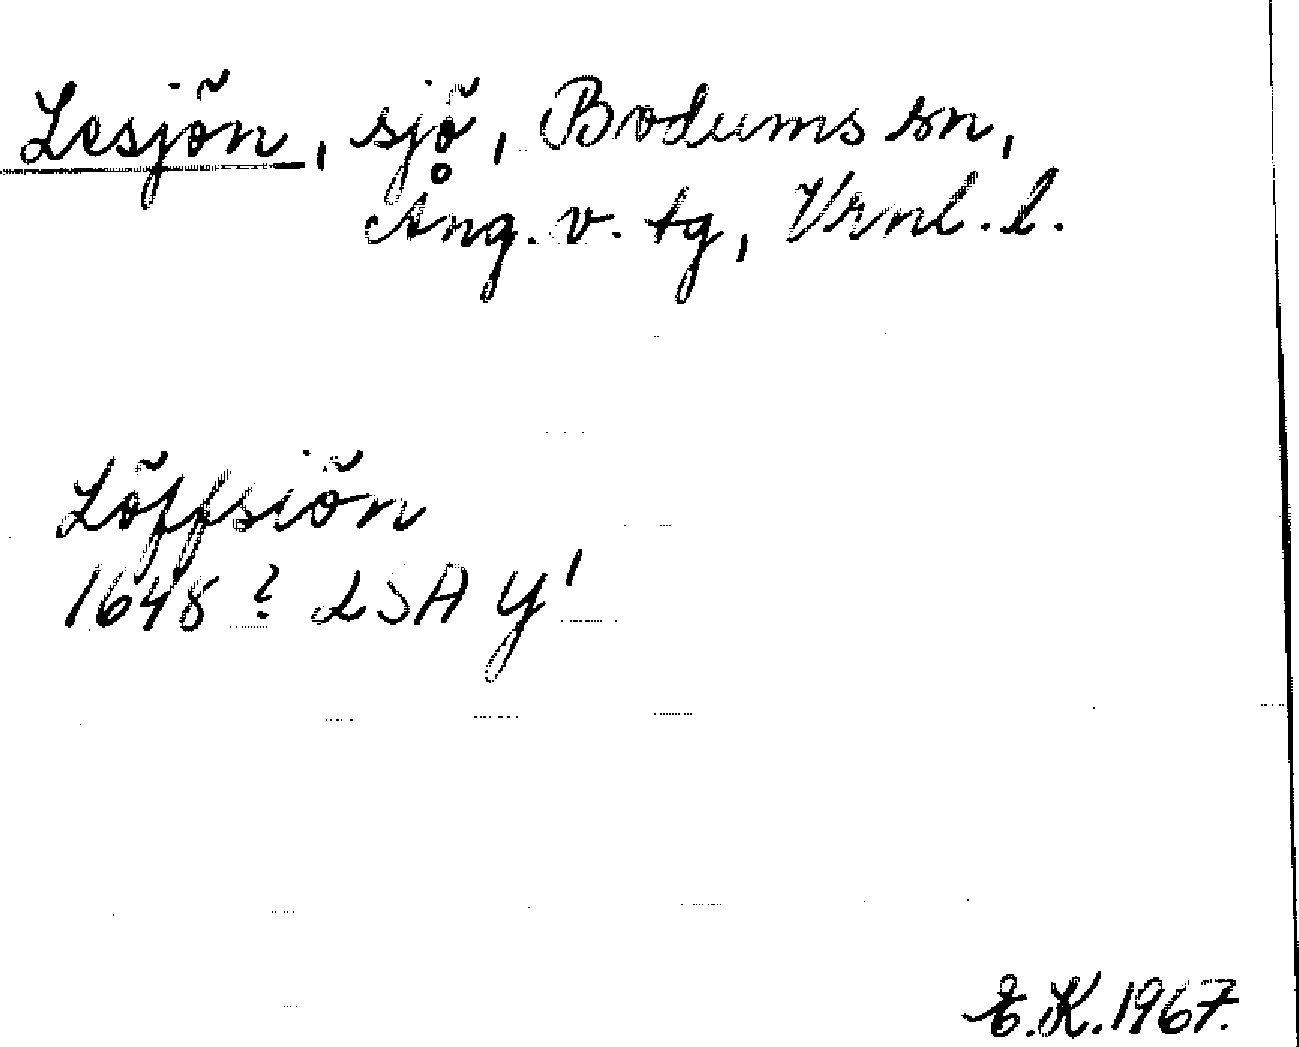 Lesjön, sjö, Bodums sn,
Ång. v. tg, Vrnl. l.
Löffsiön
1648? LSA Y'
E.K. 1967.